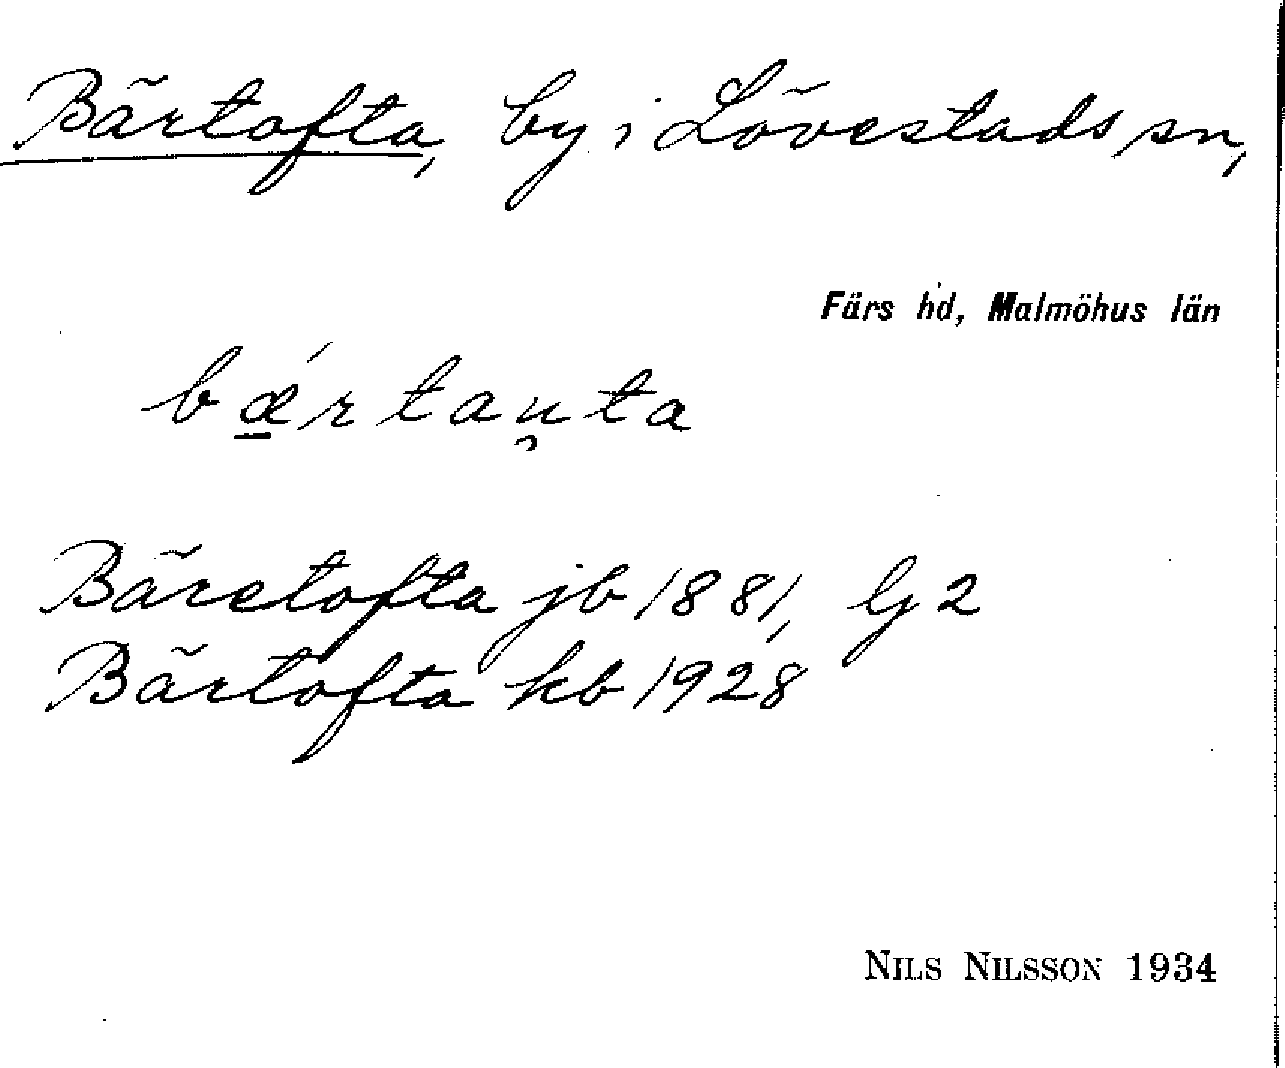 Bärtofta, by i Lövestads sn,
Färs hd, Malmöhus län
bǽrtau̯ta
Bäretofta jb 1881, G 2
Bärtofta kb 1928
NILS NILSSON 1934